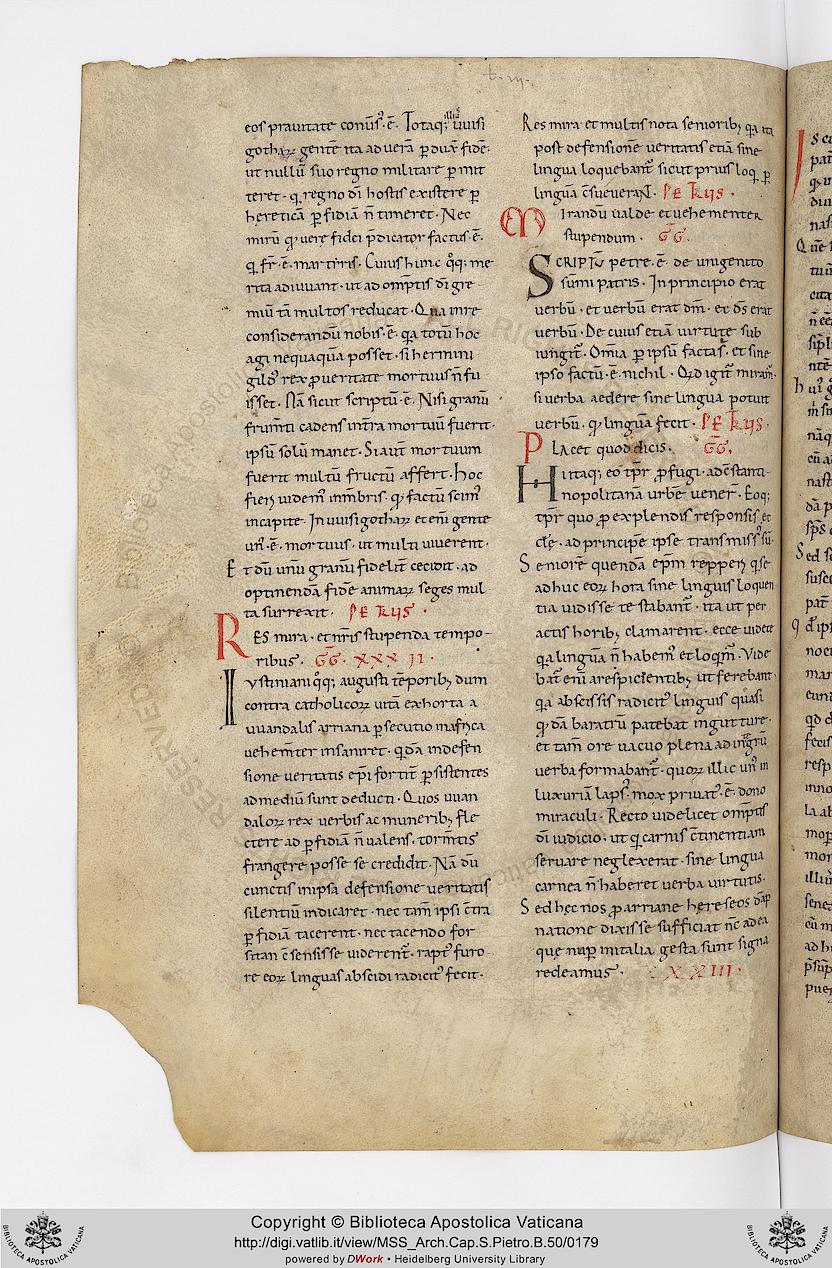 eos prauitate conūsꝰ·ē· Totaq; illiꝰ uuisi
gothaꝝ gentē ita ad uerā ꝑduxꝰ fidē·
ut nullū suo regno militare ꝑmit
teret· q̇ regno dī hostis existere ꝑ
hereticā ꝑfidiā ñ timeret· Nec
mirū qđ uere fidei p̄dicator factus·ē·
q̇ fr̄·ē· martyris· Cuius hunc q̊q; me
rita adiuuant· ut ad omp̄tis dī gre
miū tā multos reducat· Qua in re
considerandū nobis·ē· qa totū hoc
agi nequaquā posset· si hermini
gildꝰ rex ꝓ ueritate mortuus ñ fu
isset· Nā sicut scriptū·ē· Nisi granū
frum̄ti cadens in t̄ra mortuū fuerit·
ipsū solū manet· Si aut̄ mortuum
fuerit multū fructū affert· hoc
fieri uidemꝰ in mēbris· qđ factū scimꝰ
in capite· In uuisigothaꝝ etenī gente
unꝰ·ē· mortuus· ut multi uiuerent·
Et dū unū granū fidelit̄ cecidit· ad
optinendā fidē animaꝝ seges mul
ta surrexit· PETRUS·
RES mira· et nr̄is stupenda tempo
ribus· GG· XXXII·
Iustiniani q̊q; augusti tēporib; dum
contra catholicoꝝ uitā exhorta a
uuandalis arriana ꝑsecutio in africa
uehem̄ter insaniret· qđā in defen
sione ueritatis ep̄i fortit̄ ꝑsistentes
ad mediū sunt deducti· Quos uuan
daloꝝ rex uerbis ac munerib; fle
ctere ad ꝑfidiā ñ ualens· torm̄tis
frangere posse se credidit· Nā dū
cunctis in ipsa defensione ueritatis
silentiū indicaret· nec tam̄ ipsi c̄tra
ꝑfidiā tacerent· nec tacendo for
sitan c̄sensisse uiderent̄· raptꝰ furo
re eoꝝ linguas abscidi radicitꝰ fecit·
Res mira et multis nota seniorib; qa ita
post defensionē ueritatis etiā sine
lingua loquebant̄ sicut prius loq̇ ꝑ
linguā c̄sueuerant· PETRUS·
Mirandū ualde et uehementer
stupendum· GG·
Scriptū petre·ē· de unigenito
summi patris· In principio erat
uerbū· et uerbū erat ap̄ dm̄· et ds̄ erat
uerbū· De cuius etiā uirtute sub
iungit̄· Om̄ia ꝑ ipsū facta s̄· et sine
ipso factū·ē· nichil· Qd igit̄ miram̄·
si uerba aedere sine lingua potuit
uerbū· qđ linguā fecit· PETRUS·
Placet quod dicis· GG·
Hi itaq; eo tp̄r ꝓfugi· ad c̄stanti
nopolitanā urbē uenerꝰ· Eoq;
tp̄r quo ꝓ explendis responsis ec
clē· ad principē ipse transmissꝰ sū·
Seniorē quendā ep̄m repperi qi se
adhuc eoꝝ hora sine linguis loquen
tia uidisse testabant̄· ita ut per
actis horib; clamarent· ecce uidete
qa linguā ñ habemꝰ et loqm̄· Vide
bat̄ enī a respicientib; ut ferebant·
qa abscissis radicitꝰ linguis quasi
qđdam baratrū patebat in gutture·
et tam̄ ore uacuo plena ad integrū
uerba formabant̄· quoꝝ illic unꝰ in
luxuriā lapsꝰ· mox priuatꝰ·ē· dono
miraculi· Recto uidelicet omp̄tis
dī iudicio· ut q̇ carnis c̄tinentiam
seruare neglexerat· sine lingua
carnea ñ haberet uerba uirtutis·
Sed hec nos ꝓ arriane hereseos dāp
natione dixisse sufficiat nc̄ ad ea
que nup̄ in italia gesta sunt signa
redeamus· XXXIII·
Copyright © Biblioteca Apostolica Vaticana
http://digi.vatlib.it/view/MSS_Arch.Cap.S.Pietro.B.50/0179
powered by DWork • Heidelberg University Library